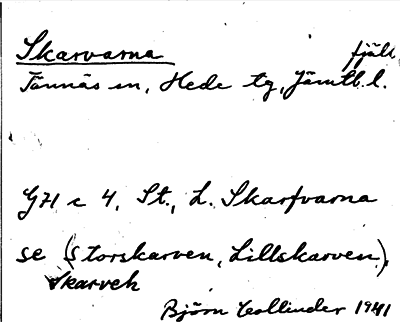 Skarvarna fjäll
Tännäs sn, Hede tg, Jämtl. l.
G71 c 4, St., L. Skarfvarna
se (Storskarven, Lillskarven),
Skarveh
Björn Collinder 1941